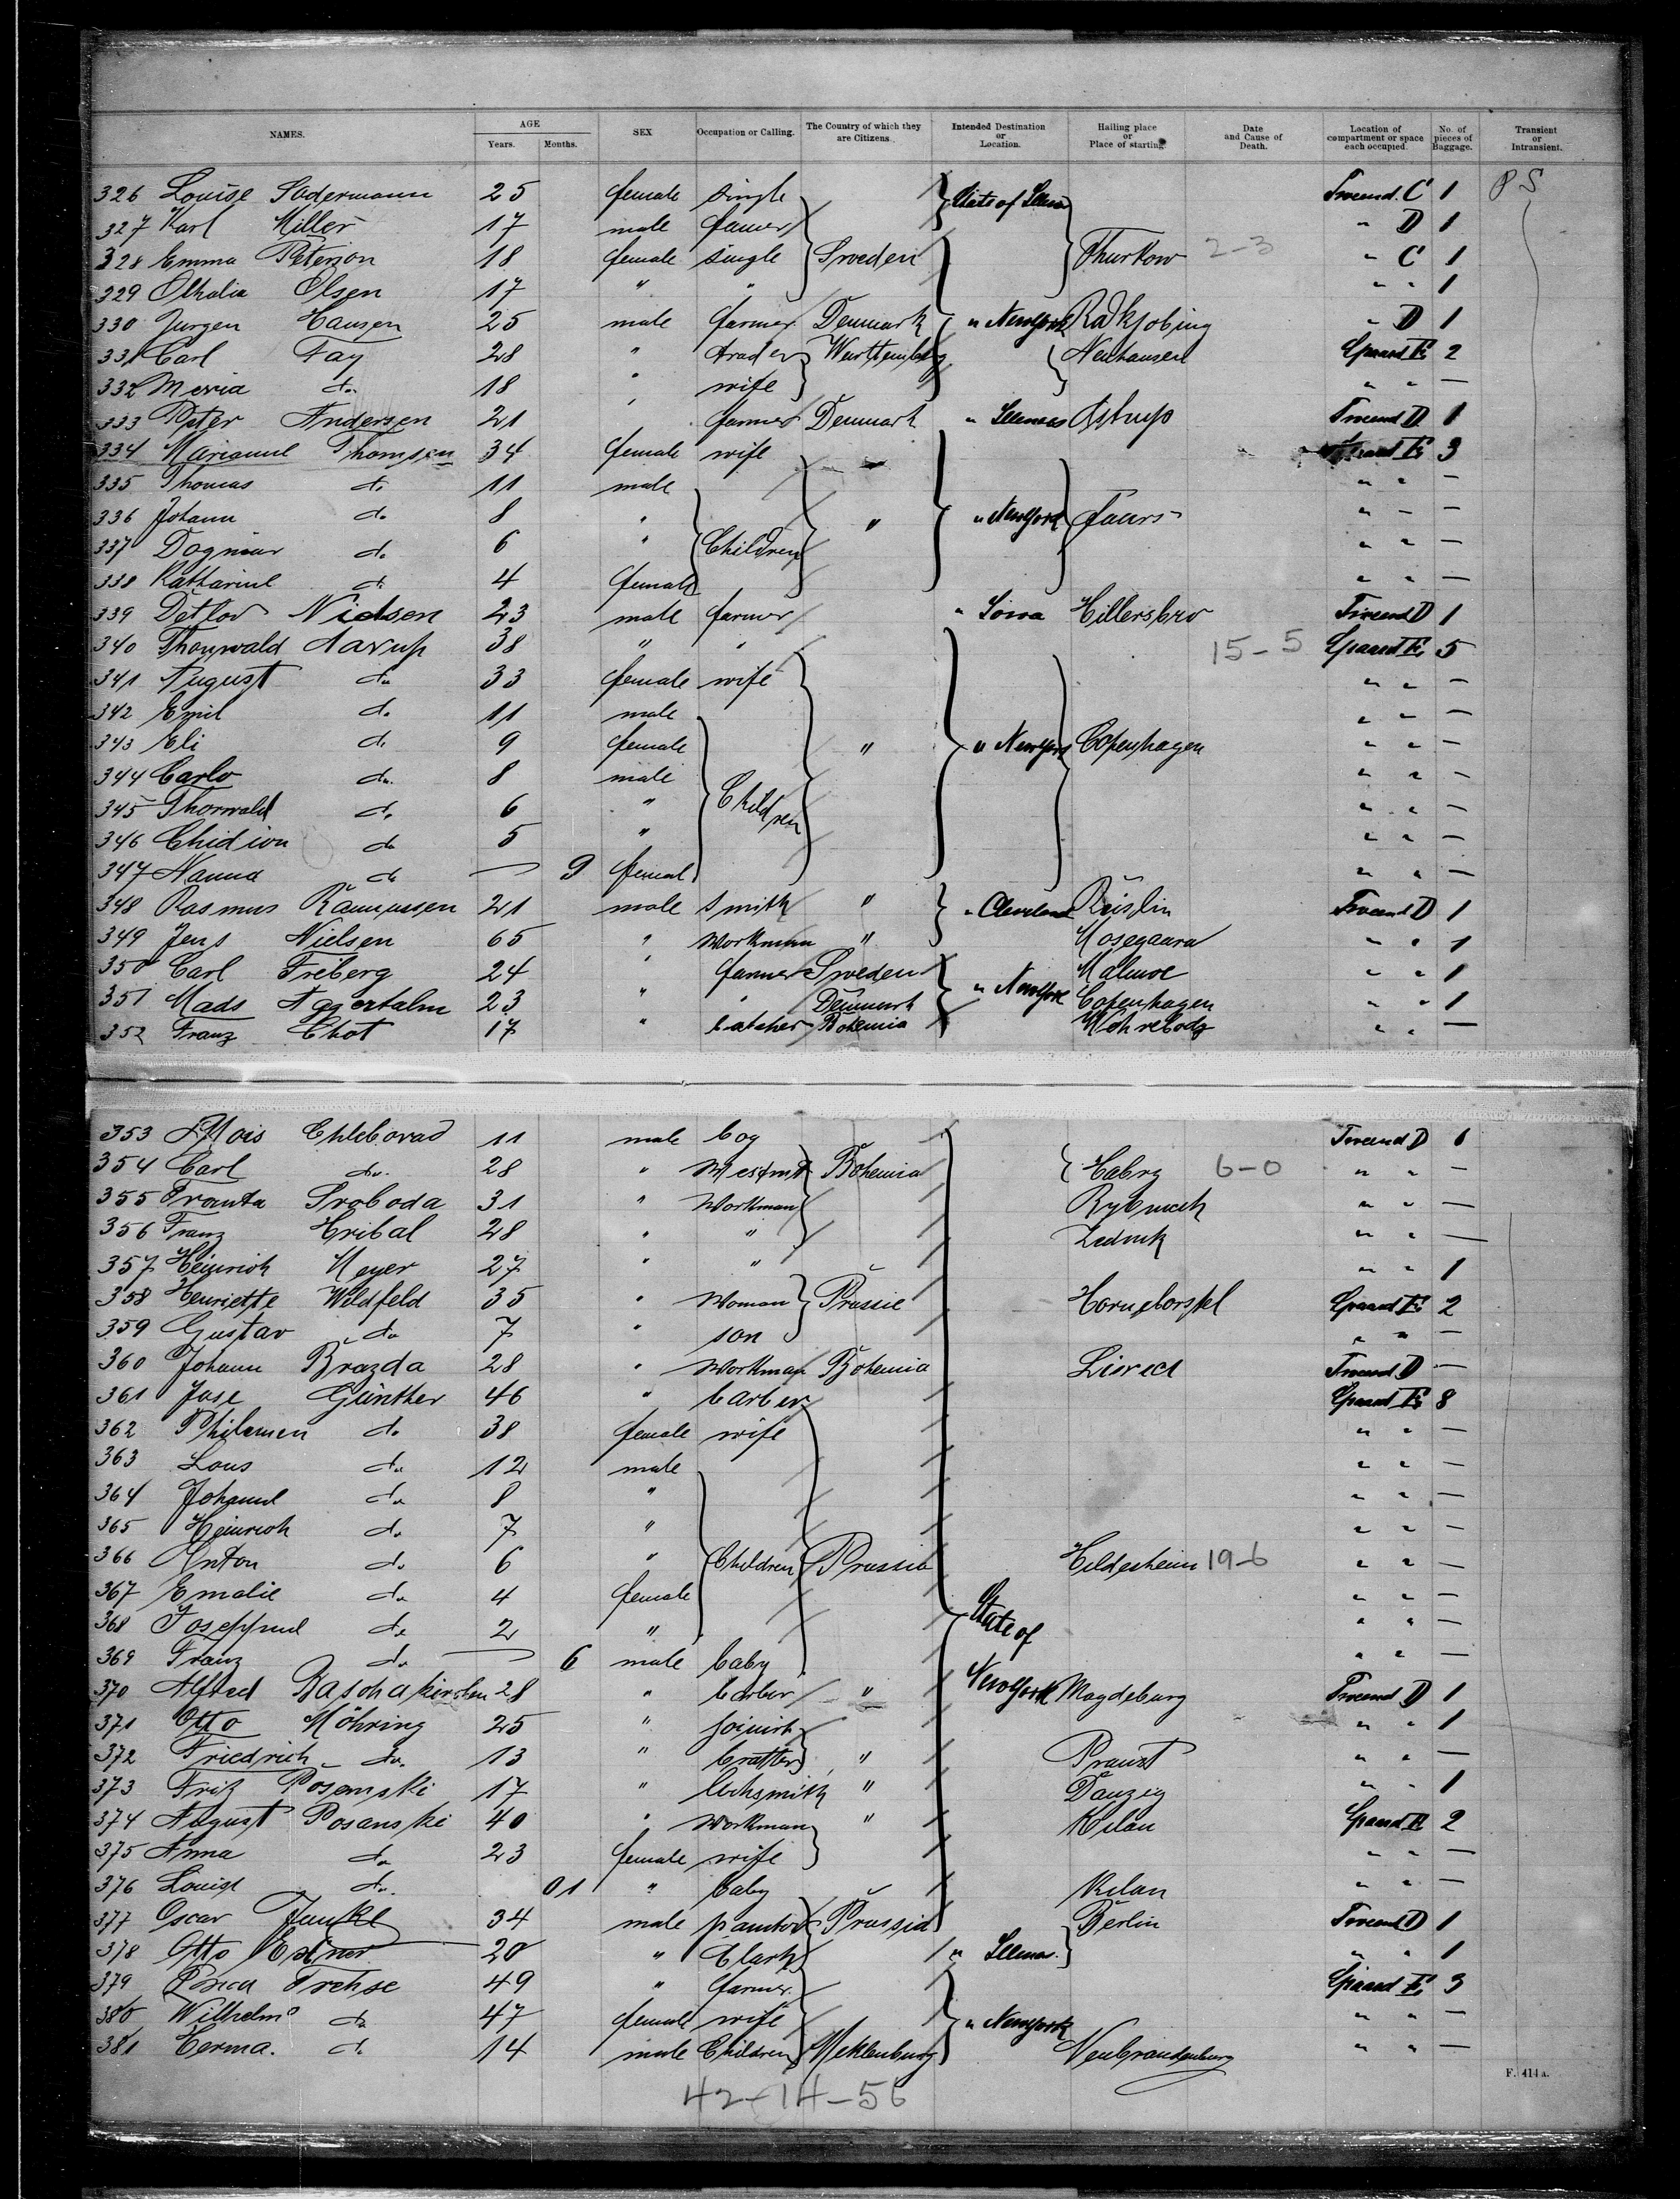 NAMES. AGE Years. Months. SEX Occupation or Calling. The Country of which they are Citizens. Intended Destination or Location. Hailing place or Place of starting Date and Cause of Death. Location of compartment or space each occupied. No. of pieces of Baggage. Transient or Intransient.
326 Louise Sodermann 25 female single State of C 1 P S
327 Karl Miller 17 male farmer " D 1
328 Emma Peterson 18 female single Sweden Thurkow 2-3 " C 1
329 Othalia Olsen 17 " " " " 1
330 Jurgen Hansen 25 male farmer Denmark " NewYork Radkjobing " D 1
331 Carl Fay 28 " trader Wurttemberg Neuhausen E 2
332 Meria do. 18 " wife " " —
333 Peter Andersen 21 " farmer Denmark " Astrup D 1
334 Marianne Thomsen 34 female wife E 3
335 Thomas do 11 male " " —
336 Johann do 8 " " " NewYork Faurs " " —
337 Dagmar do 6 " Children " " —
338 Katharine do 4 female " " —
339 Detlov Nielsen 23 male farmer " Iowa Hillersbro D 1
340 Thorwald Aarup 38 " " 15-5 E 5
341 August do 33 female wife " " —
342 Emil do 11 male " " —
343 Eli do 9 female " " NewYork Copenhagen " " —
344 Carlo do 8 male " " —
345 Thorwald do 6 " Children " " —
346 Chidion do 5 " " " —
347 Nanna do — 9 female " " —
348 Rasmus Rasmussen 21 male smith " " Cleveland Reislin D 1
349 Jens Nielsen 65 " workman " Mosegaard " " 1
350 Carl Freberg 24 " farmer Sweden " NewYork Malmoe " " 1
351 Mads Aggerhalm 23 " " Denmark Copenhagen " " 1
352 Franz Chot 17 " Bohemia " " —
353 Alois Chleborad 11 male boy D 1
354 Carl do. 28 " Bohemia Habry 6-0 " " —
355 Franta Svoboda 31 " workman " " —
356 Franz Hribal 28 " " " " —
357 Heinrich Meyer 27 " " " " 1
358 Henriette Wildfeld 35 " woman Prussie Horneborstel E 2
359 Gustav do 7 " son " " —
360 Johann Brazda 28 " workman Bohemia D —
361 Jose Günther 46 " barber E 8
362 Philemen do 38 female wife " " —
363 Lous do 12 male " " —
364 Johann do 8 " " " —
365 Heinrich do 7 " " " —
366 Anton do 6 " Children Prussia Hildesheim 19-6 " " —
367 Emalie do 4 female " " —
368 Joseppine do 2 " State of " " —
369 Franz do — 6 male baby " " —
370 Alfred 28 " barber " NewYork Magdeburg D 1
371 Otto Möhring 25 " joinist " " 1
372 Friedrich do. 13 " " Praust " " —
373 Fritz Posemski 17 " locksmith " Danzig " " 1
374 August Posanski 40 " workman " Kilau E 2
375 Anna do 23 female wife " " —
376 Louise do. 01 " baby Kilau " " —
377 Oscar Funke 34 male Prussia Berlin D 1
378 Otto 20 " Clark " " " 1
379 Trehse 49 " farmer E 3
380 Wilhelm do 47 female wife " NewYork " " —
381 Herma. do 14 male Children Meklenburg Neubrandenburg " " —
42-14-56
F. 414 a.